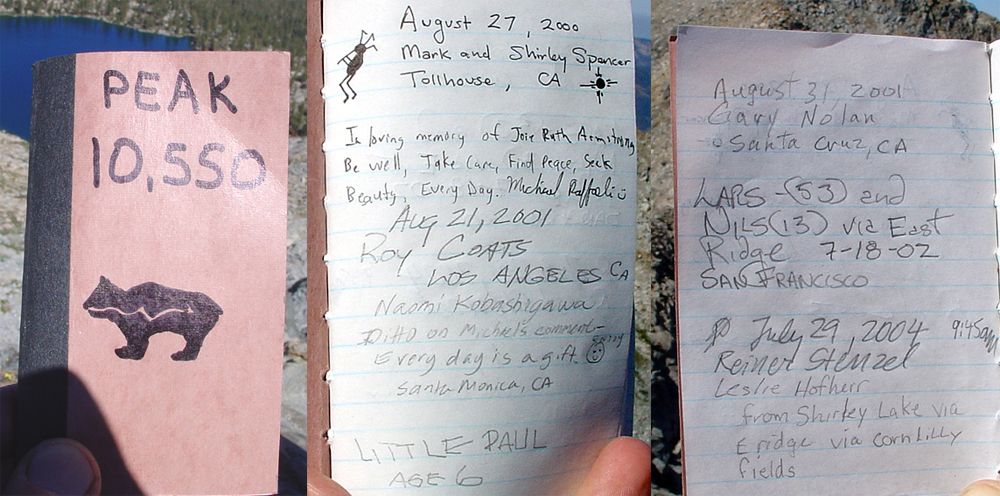 PEAK
10,550
August 27, 2000
Mark and Shirley Spencer
Tollhouse, CA
In loving memory of Joie Ruth Armstrong
Be well, Take Care, Find Peace, Seek
Beauty, Every Day. Michael Raffaeli
Aug 21, 2001
Roy COATS
LOS ANGELES CA
Naomi Kobashigawa
Ditto on Michael's comment-
Every day is a gift.
Santa Monica, CA
LITTLE PAUL
AGE 6
August 31, 2001
Gary Nolan
Santa Cruz, CA
LARS -(53) and
NILS(13) via East
Ridge 7-18-02
SAN FRANCISCO
July 29, 2004 9:45am
Reiner Stenzel
Leslie Hotherr
from Shirley Lake via
E ridge via Corn Lilly
fields